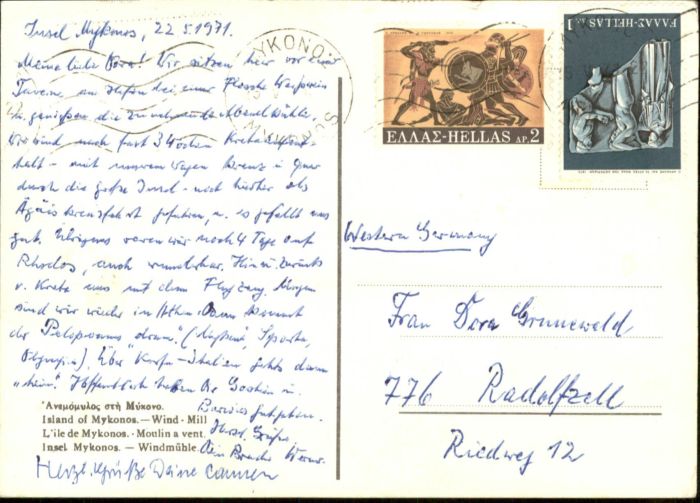 Insel Mykonos, 22.5.1971.
Meine liebe Dora! Wir sitzen hier vor einer
Taverne am Hafen bei einer Flasche Weißwein
u. genießen die zunehmende Abendkühle.
Wir sind nach fast 3 Wochen Kreta
halt - mit unserem Wagen kreuz u quer
durch die ganze Insel - nach hierher als
Ägäiskreuzfahrt gefahren, u. es gefällt uns
gut. Übrigens waren wir noch 4 Tage auf
Rhodos, auch wunderbar. Hin u. zurück
v. Kreta aus mit dem Flugzeug. Morgen
sind wir wieder in Athen. Dann kommt
der Peloponnes „dran“. (Sparta,
Olympia). Über Korfu - Italien gehts dann
„heim“. Hoffentlich haben Dir
Herzl. Grüße,
Dein Bruder Werner
Herzl. Grüße Deine Carmen
Ἀνεμόμυλος στὴ Μύκονο.
Island of Mykonos. — Wind - Mill
L'ile de Mykonos. - Moulin a vent.
Insel Mykonos. — Windmühle.
ΜΥΚΟΝΟΣ
MYKONOS
ΕΛΛΑΣ-HELLAS ΔΡ. 2
ΕΛΛΑΣ-HELLAS ΔΡ. 1
Western Germany
Frau Dora Grunewald
776 Radolfzell
Riedweg 12